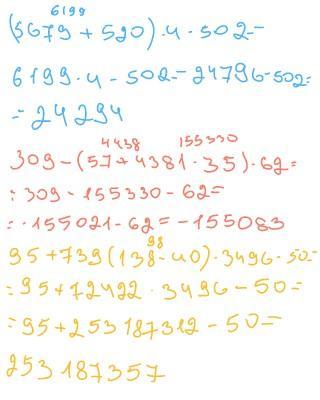 6199
(5679 + 520) · 4 - 502 =
6199 · 4 - 502 = 24796 - 502 =
= 24 294
4438 155330
309 - (57 + 4381 · 35) · 62 =
= 309 - 155330 - 62 =
= - 155021 - 62 = - 155083
98
95 + 739 (138 - 40) · 3496 - 50 =
= 95 + 72422 · 3496 - 50 =
= 95 + 253187312 - 50 =
253 187357